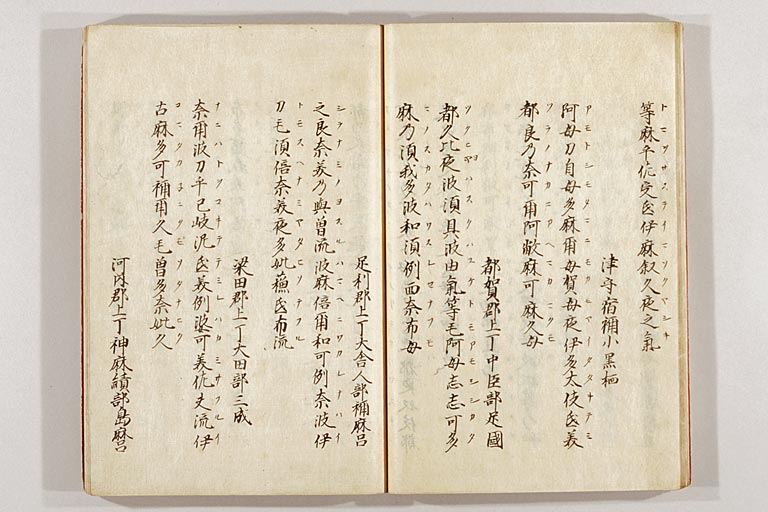 等麻乎佐受弖伊麻叙久夜之氣
津守宿祢小黒栖
阿母刀自母多麻爾母賀母夜伊多太伎弖美
都良乃奈可爾阿敝麻可麻久母
都賀郡上丁中臣部足國
都久比夜波須具波由氣等毛阿母志志可多
麻乃須我多波和須例西奈布母
足利郡上丁大舎人部祢麻呂
之良奈美乃與曽流波麻倍爾和可例奈波伊
刀毛須倍奈美夜多妣蘇弖布流
梁田郡上丁大田部三成
奈爾波刀乎己岐泥弖美例婆可美佐夫流伊
古麻多可祢爾久毛曽多奈妣久
河内郡上丁神麻績部島麻呂